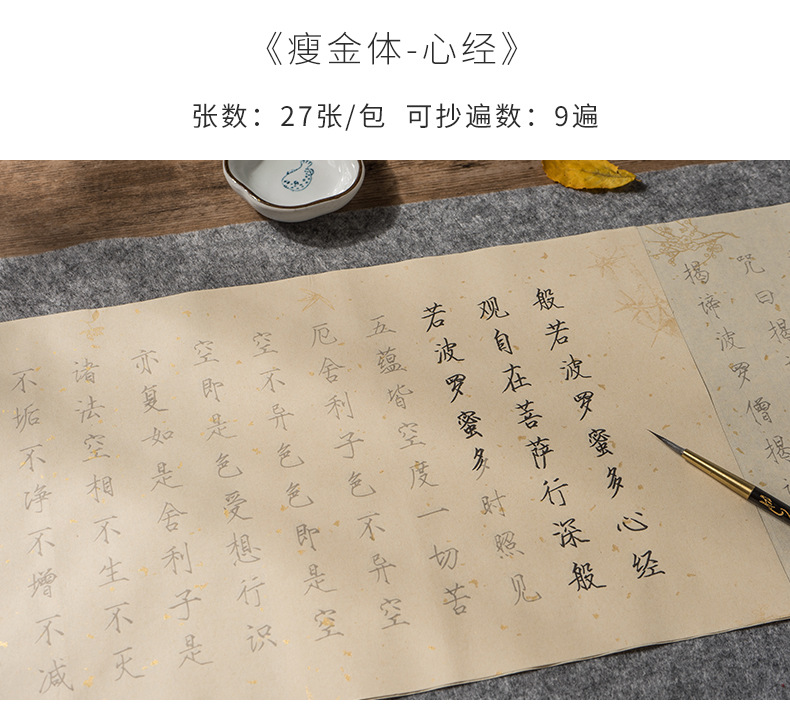 《瘦金体-心经》
张数：27张/包 可抄遍数：9遍
咒曰揭
揭谛波罗僧揭
般若波罗蜜多心经
观自在菩萨行深般
若波罗蜜多时照见
五蕴皆空度一切苦
厄舍利子色不异空
空不异色色即是空
空即是色受想行识
亦复如是舍利子是
诸法空相不生不灭
不垢不净不增不减